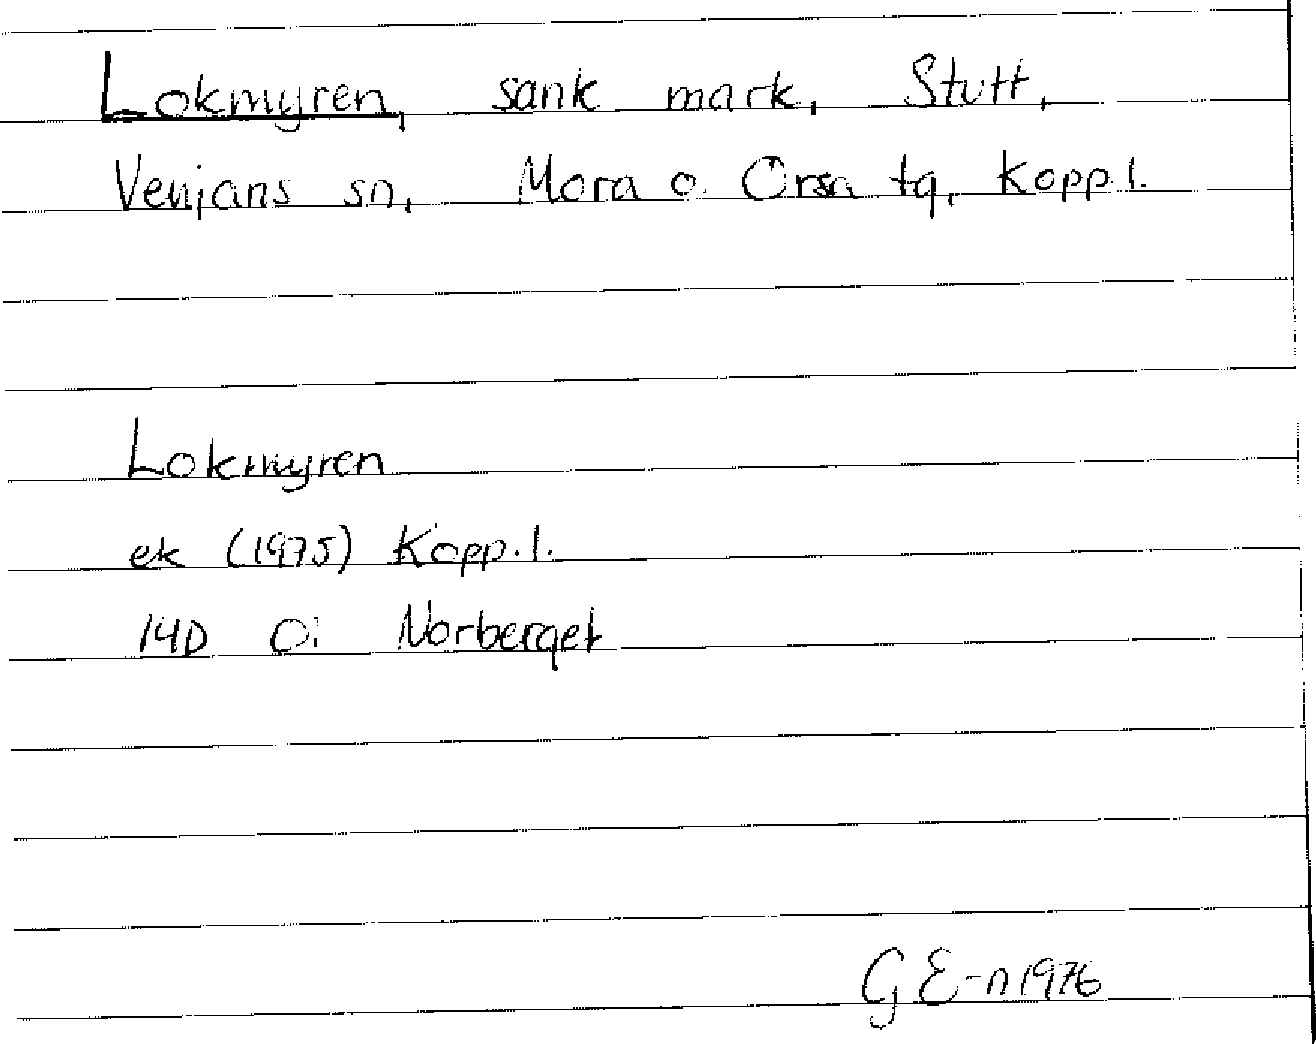 Lokmyren, sank mark, Stutt,
Venjans sn, Mora o. Orsa tg, Kopp.l.
Lokmyren
ek (1975) Kopp.l.
14D 0i Norberget
G E-n 1976